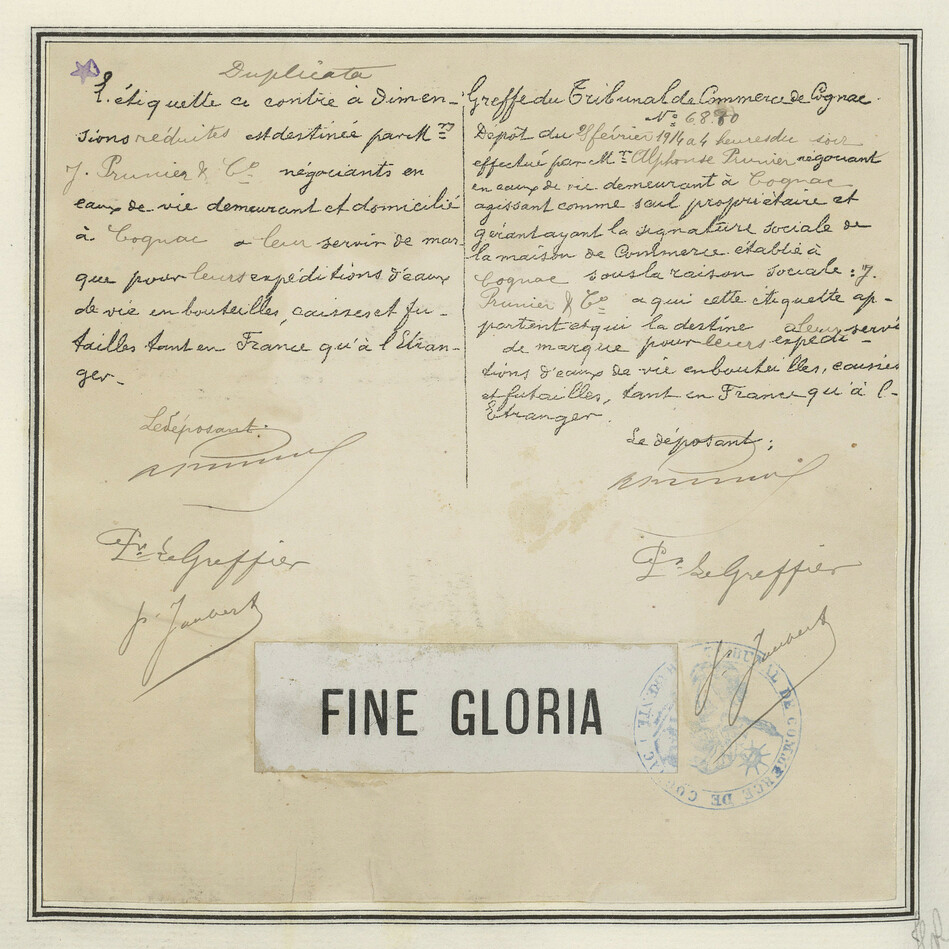 Duplicata
L'étiquette ci contre à dimen-
sions réduites est destinée par Mrs
J. Prunier & Co négociants en
eaux de vie demeurant et domicilié
à Cognac a leur servir de mar
que pour leurs expéditions d'eaux
de vie en bouteilles, caisses et fu-
tailles tant en France qu'à l'Etran-
ger.
Le déposant:
Pr Le Greffier
Greffe du Tribunal de Commerce de Cognac
No 68
Dépôt du février 1914 a 4 heures du soir
effectué par Mr Alphonse Prunier négociant
en eaux de vie demeurant à Cognac
agissant comme seul propriétaire et
gérant ayant la signature sociale de
la maison de Commerce établie à
Cognac sous la raison sociale: J.
Prunier & Co a qui cette étiquette ap-
partient et qui la destine a leur servi
de marque pour leurs expédi-
tions d'eaux de vie en bouteilles, caisses
et futailles, tant en France qu'à l'
Etranger
Le déposant;
Pr Le Greffier
FINE GLORIA
TRIBUNAL DE COMMERCE DE COGNAC